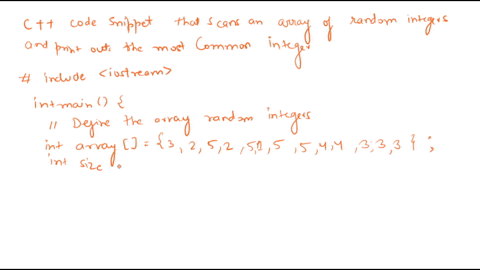 C++ code snippet that scans an array of random integers
and print out the most common integer
# include <iostream>
int main () {
// Define the array random integers
int array [] = {3, 2, 5, 2, 5, 5, 5, 4, 4, 3, 3, 3 } ;
int size